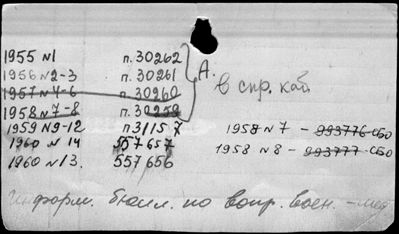 1955 №1 п. 30262
1956 №2-3 п. 30261
1957 №4-6 п. 30260
1958 №7-8 п. 30259
1959 №9-12 п 31157
1960 № 14 557657
1960 №13. 557656
А.
в спр. каб
1958 №7 - 993776-СБО
1958 №8 - 993777-СБО
Информ. бюлл. по вопр. воен. -мед